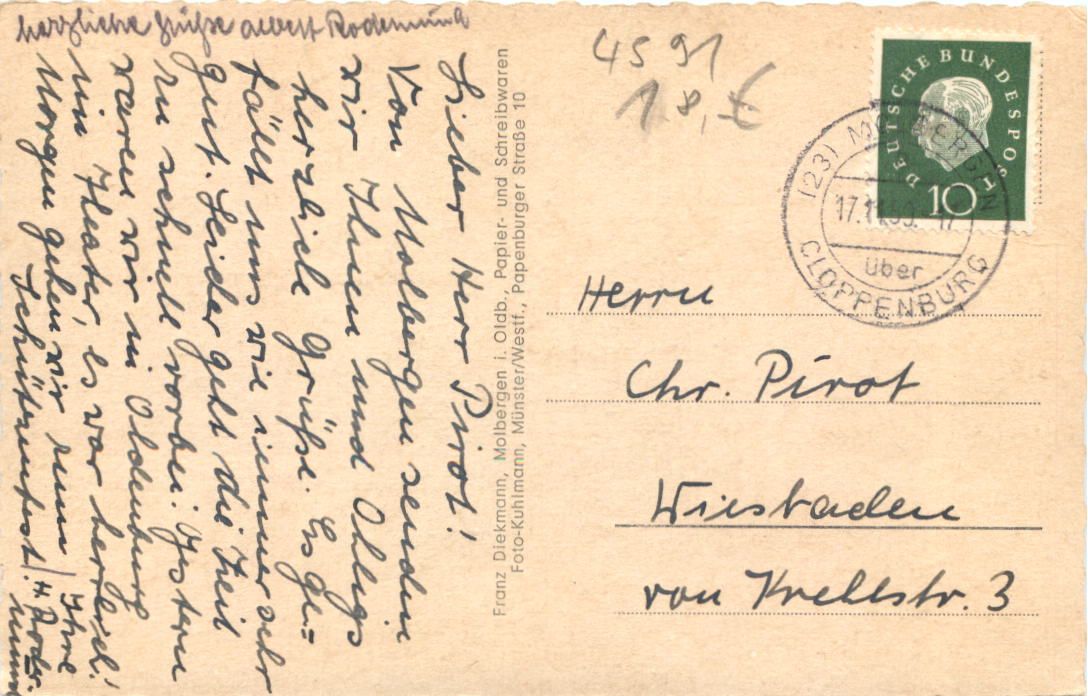 herzliche Grüße Albert Rodemund
Lieber Herr Pirot!
Von Molbergen senden
wir Ihnen und Ohligs
herzliche Grüße. Es ge=
fällt uns wie immer sehr
gut. Leider geht die Zeit
zu schnell vorbei. Gestern
waren wir in Oldenburg
im Theater, es war herrlich!
Morgen gehen wir zum
Schützenfest!
Ihre
H. Rode-
mund
Franz Diekmann, Molbergen i. Oldb., Papier- und Schreibwaren
Foto-Kuhlmann, Münster/Westf., Papenburger Straße 10
4591
18,€
DEUTSCHE BUNDESPOST
10
(23) MOLBERGEN
über
CLOPPENBURG
Herrn
Chr. Pirot
Wiesbaden
3